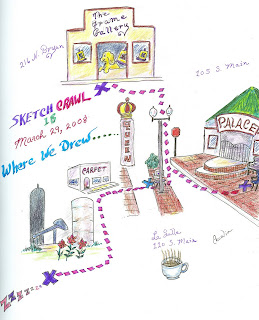 The
Frame
Gallery
216 N. Bryan
205 S. Main
SKETCH CRAWL
18
March 29, 2008
Where We Drew.....
QUEEN
PALACE
CARPET
La Salle
120 S. Main